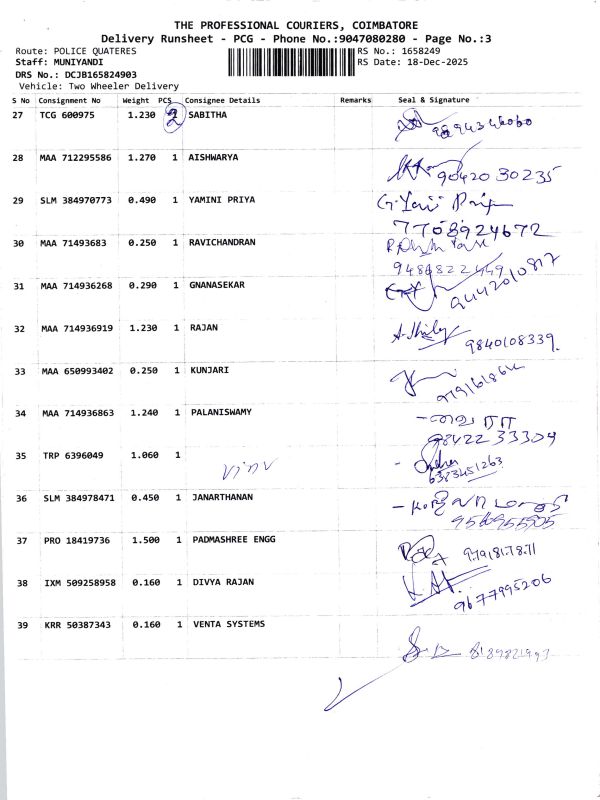 THE PROFESSIONAL COURIERS, COIMBATORE
Delivery Runsheet - PCG - Phone No.:9047080280 - Page No.:3
Route: POLICE QUATERES RS No.: 1658249
Staff: MUNIYANDI RS Date: 18-Dec-2025
DRS No.: DCJB165824903
Vehicle: Two Wheeler Delivery
S No Consignment No Weight PCS Consignee Details Remarks Seal & Signature
27 TCG 600975 1.230 2 SABITHA
9894346060
28 MAA 712295586 1.270 1 AISHWARYA
9042030235
29 SLM 384970773 0.490 1 YAMINI PRIYA
7708924672
30 MAA 71493683 0.250 1 RAVICHANDRAN
31 MAA 714936268 0.290 1 GNANASEKAR
9442010817
32 MAA 714936919 1.230 1 RAJAN
9840108339.
33 MAA 650993402 0.250 1 KUNJARI
34 MAA 714936863 1.240 1 PALANISWAMY
9842233304
35 TRP 6396049 1.060 1
6383451263
36 SLM 384978471 0.450 1 JANARTHANAN
37 PRO 18419736 1.500 1 PADMASHREE ENGG
9791817871
38 IXM 509258958 0.160 1 DIVYA RAJAN
9677995206
39 KRR 50387343 0.160 1 VENTA SYSTEMS